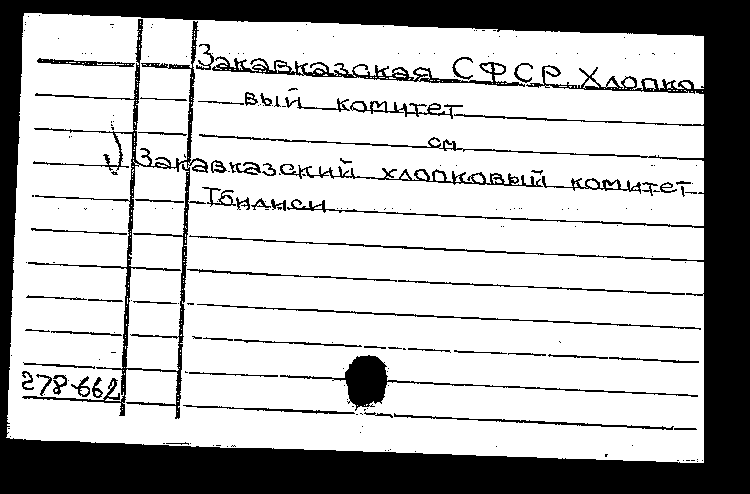 Закавказская СФСР. Хлопко-
вый комитет
см.
√ Закавказский хлопковый комитет
Тбилиси.
278-662